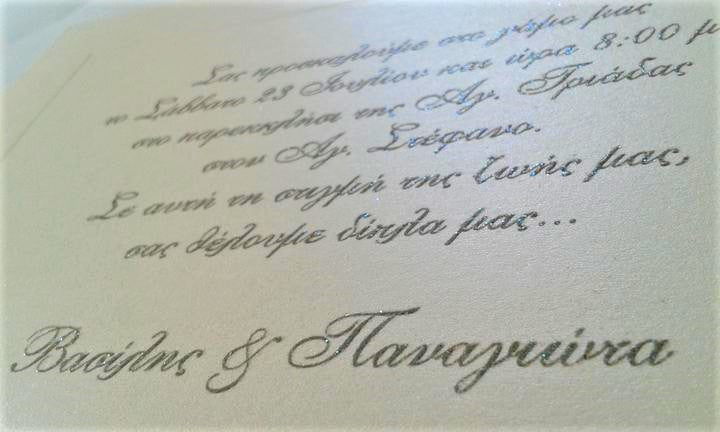 Σας προσκαλούμε στο γάμο μας
το Σάββατο 23 Ιουλίου και ώρα 8:00 μ
στο παρεκκλήσι της Αγ. Τριάδας
στον Αγ. Στέφανο.
Σε αυτή τη στιγμή της ζωής μας,
σας θέλουμε δίπλα μας...
Βασίλης & Παναγιώτα